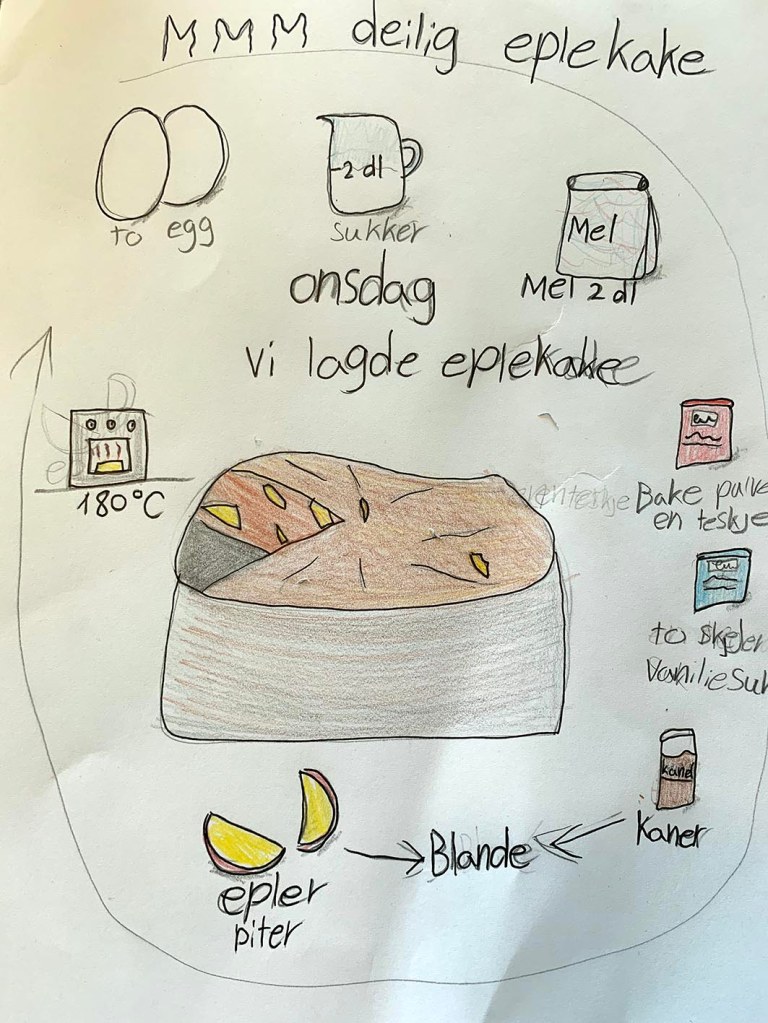 MMM deilig eplekake
2 dl
to egg
sukker
Mel
Mel 2 dl
onsdag
vi lagde eplekake
180°C
Bake pulve
en teskje
to skjeer
VanilieSuk
kanel
Kaner
Blande
epler
piter